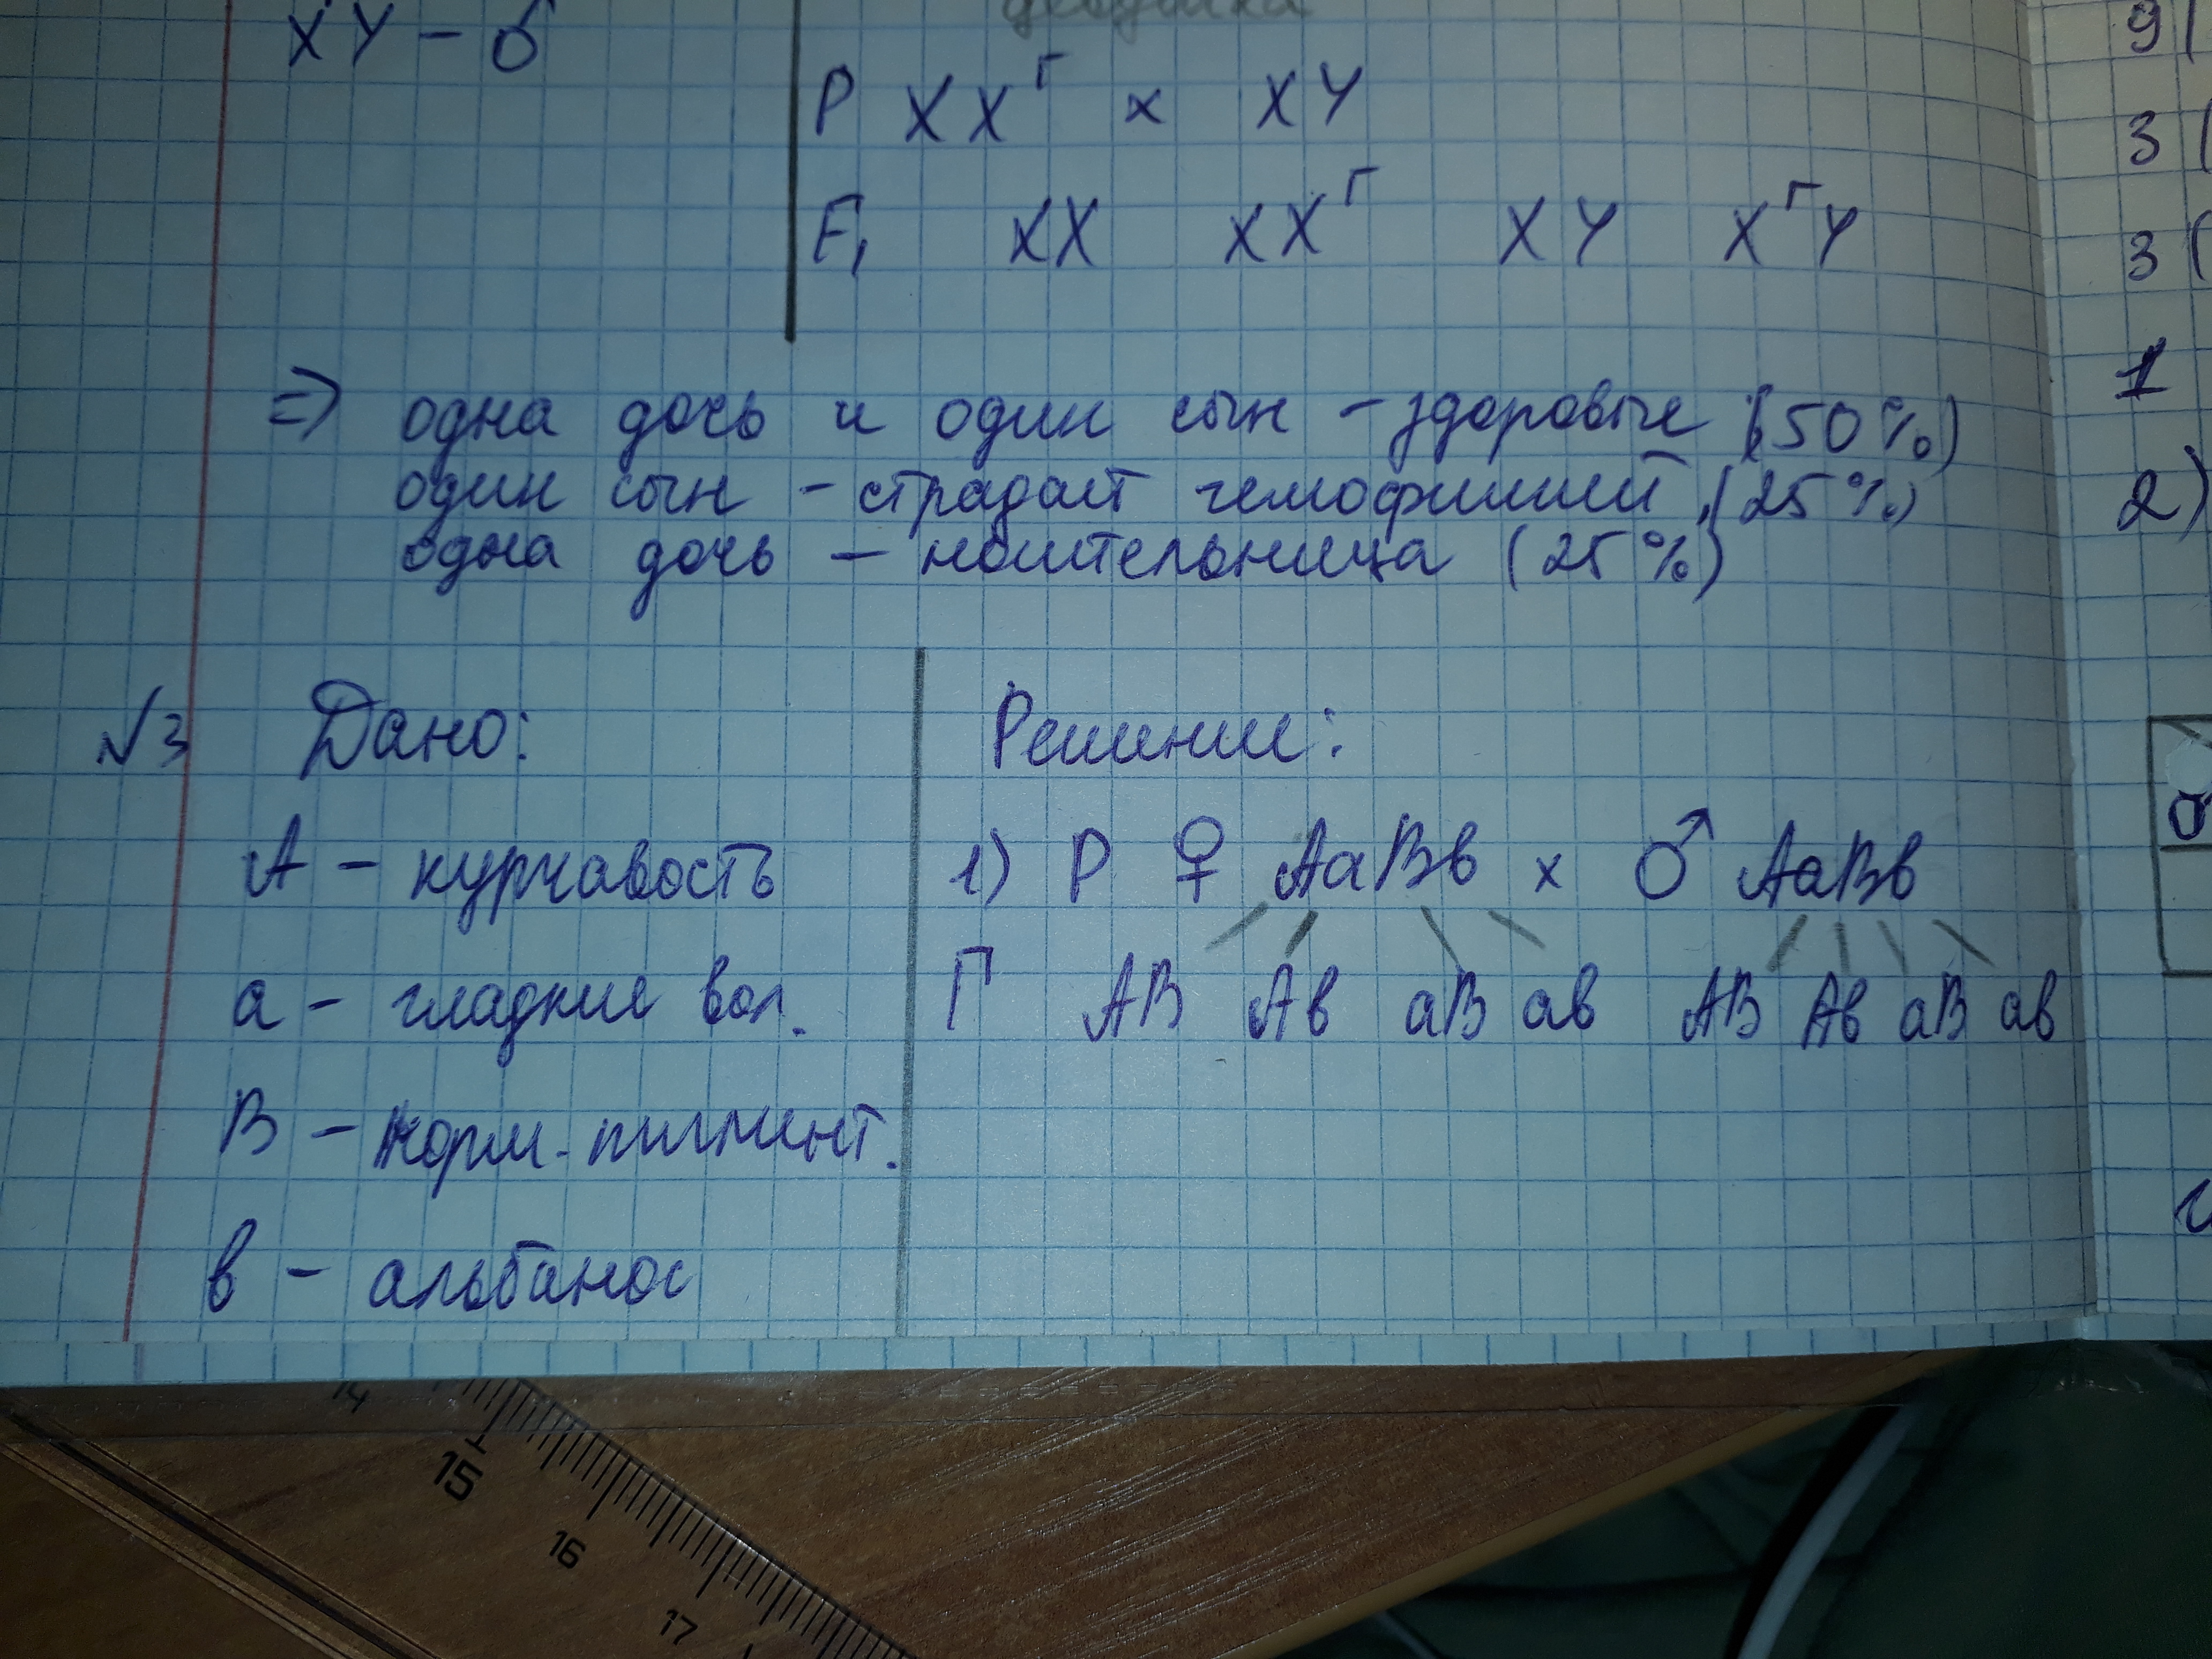 XY – ♂
P XXᴦ × XY
F₁ XX XXᴦ XY XᴦY
=> одна дочь и один сын – здоровые (50%)
один сын – страдает гемофилией (25%)
одна дочь – носительница (25%)
№3 Дано:
А – курчавость
а – гладкие вол.
В – норм. пигмент.
в – альбанос
Решение:
1) P ♀ АаВв × ♂ АаВв
Г АВ Ав аВ ав АВ Ав аВ ав
9(
3(
3(
1
2)
14
15
16
17